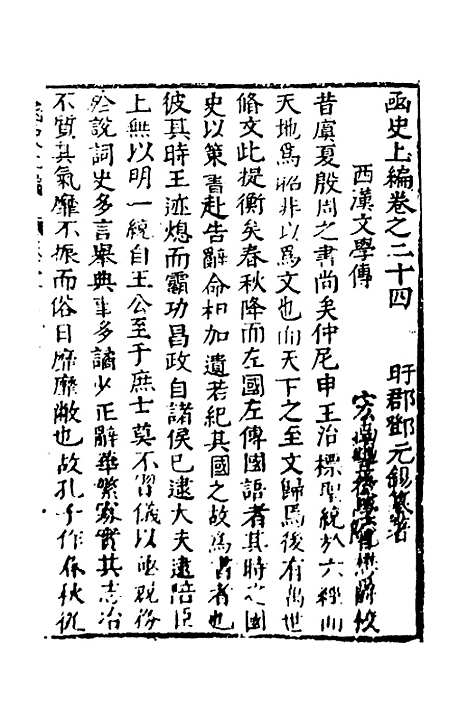 函史上編卷之二十四　盱郡鄧元錫纂著
西漢文學傳
昔虞夏殷周之書尚矣仲尼申王治標聖統於六經而
天地爲昭非以爲文也而天下之至文歸焉後有萬世
脩文此提衡矣春秋降而左國左傳國語者其時之國
史以策書赴告辭命相加遺若紀其國之故爲書者也
彼其時王迹熄而霸功昌政自諸侯已逮大夫逮陪臣
上無以明一統自王公至于庶士莫不習儀以亟視務
於說詞史多言舉典事多譎少正辭華繁寡實其志冶
不質其氣靡不振而俗日靡靡敝也故孔子作春秋從